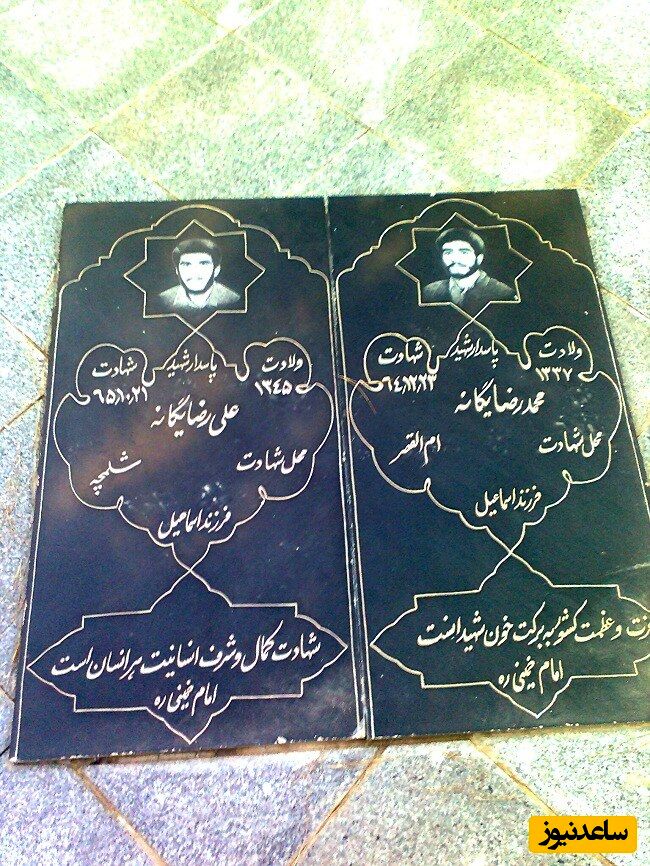 ولادت
پاسدار شهید
شهادت
۱۳۳۷
۶۴,۱۲,۲۳
محمد رضا یگانه
محل شهادت
ام القصر
فرزند اسماعیل
عزت و عظمت کشور به برکت خون شهدا است
امام خمینی ره
ولادت
پاسدار شهید
شهادت
۱۳۴۵
۶۵,۱۰,۲۱
علی رضا یگانه
محل شهادت
شلمچه
فرزند اسماعیل
شهادت کمال و شرف انسانیت هر انسان است
امام خمینی ره
ساعدنیوز